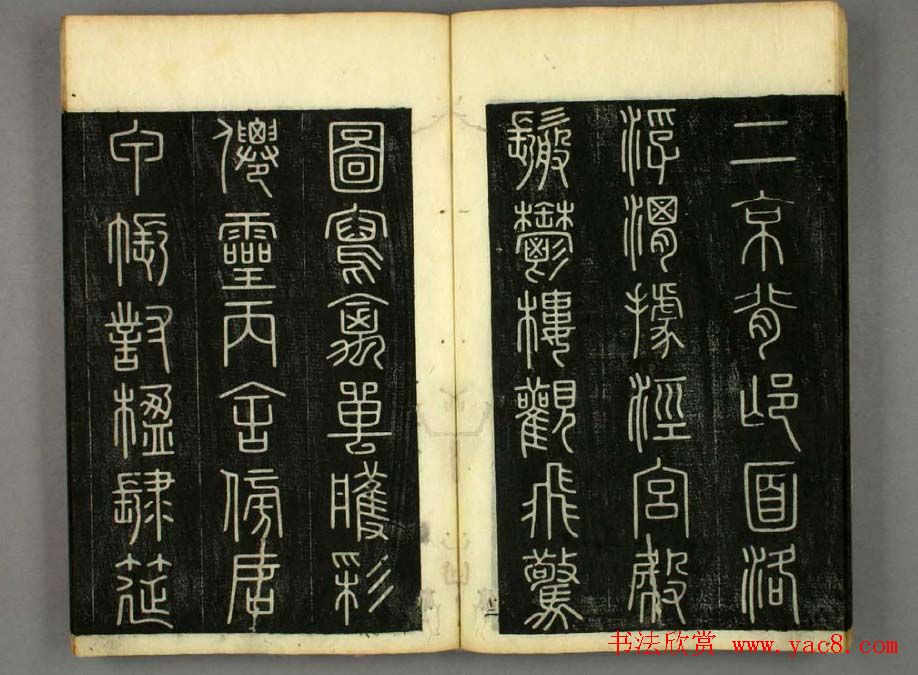 二京背邙面洛
浮渭據涇宮殿
盤鬱樓觀飛驚
圖寫禽嘼雘彩
僊靈丙舍傍啟
甲帳對楹肆筵
书法欣赏 www.yac8.com